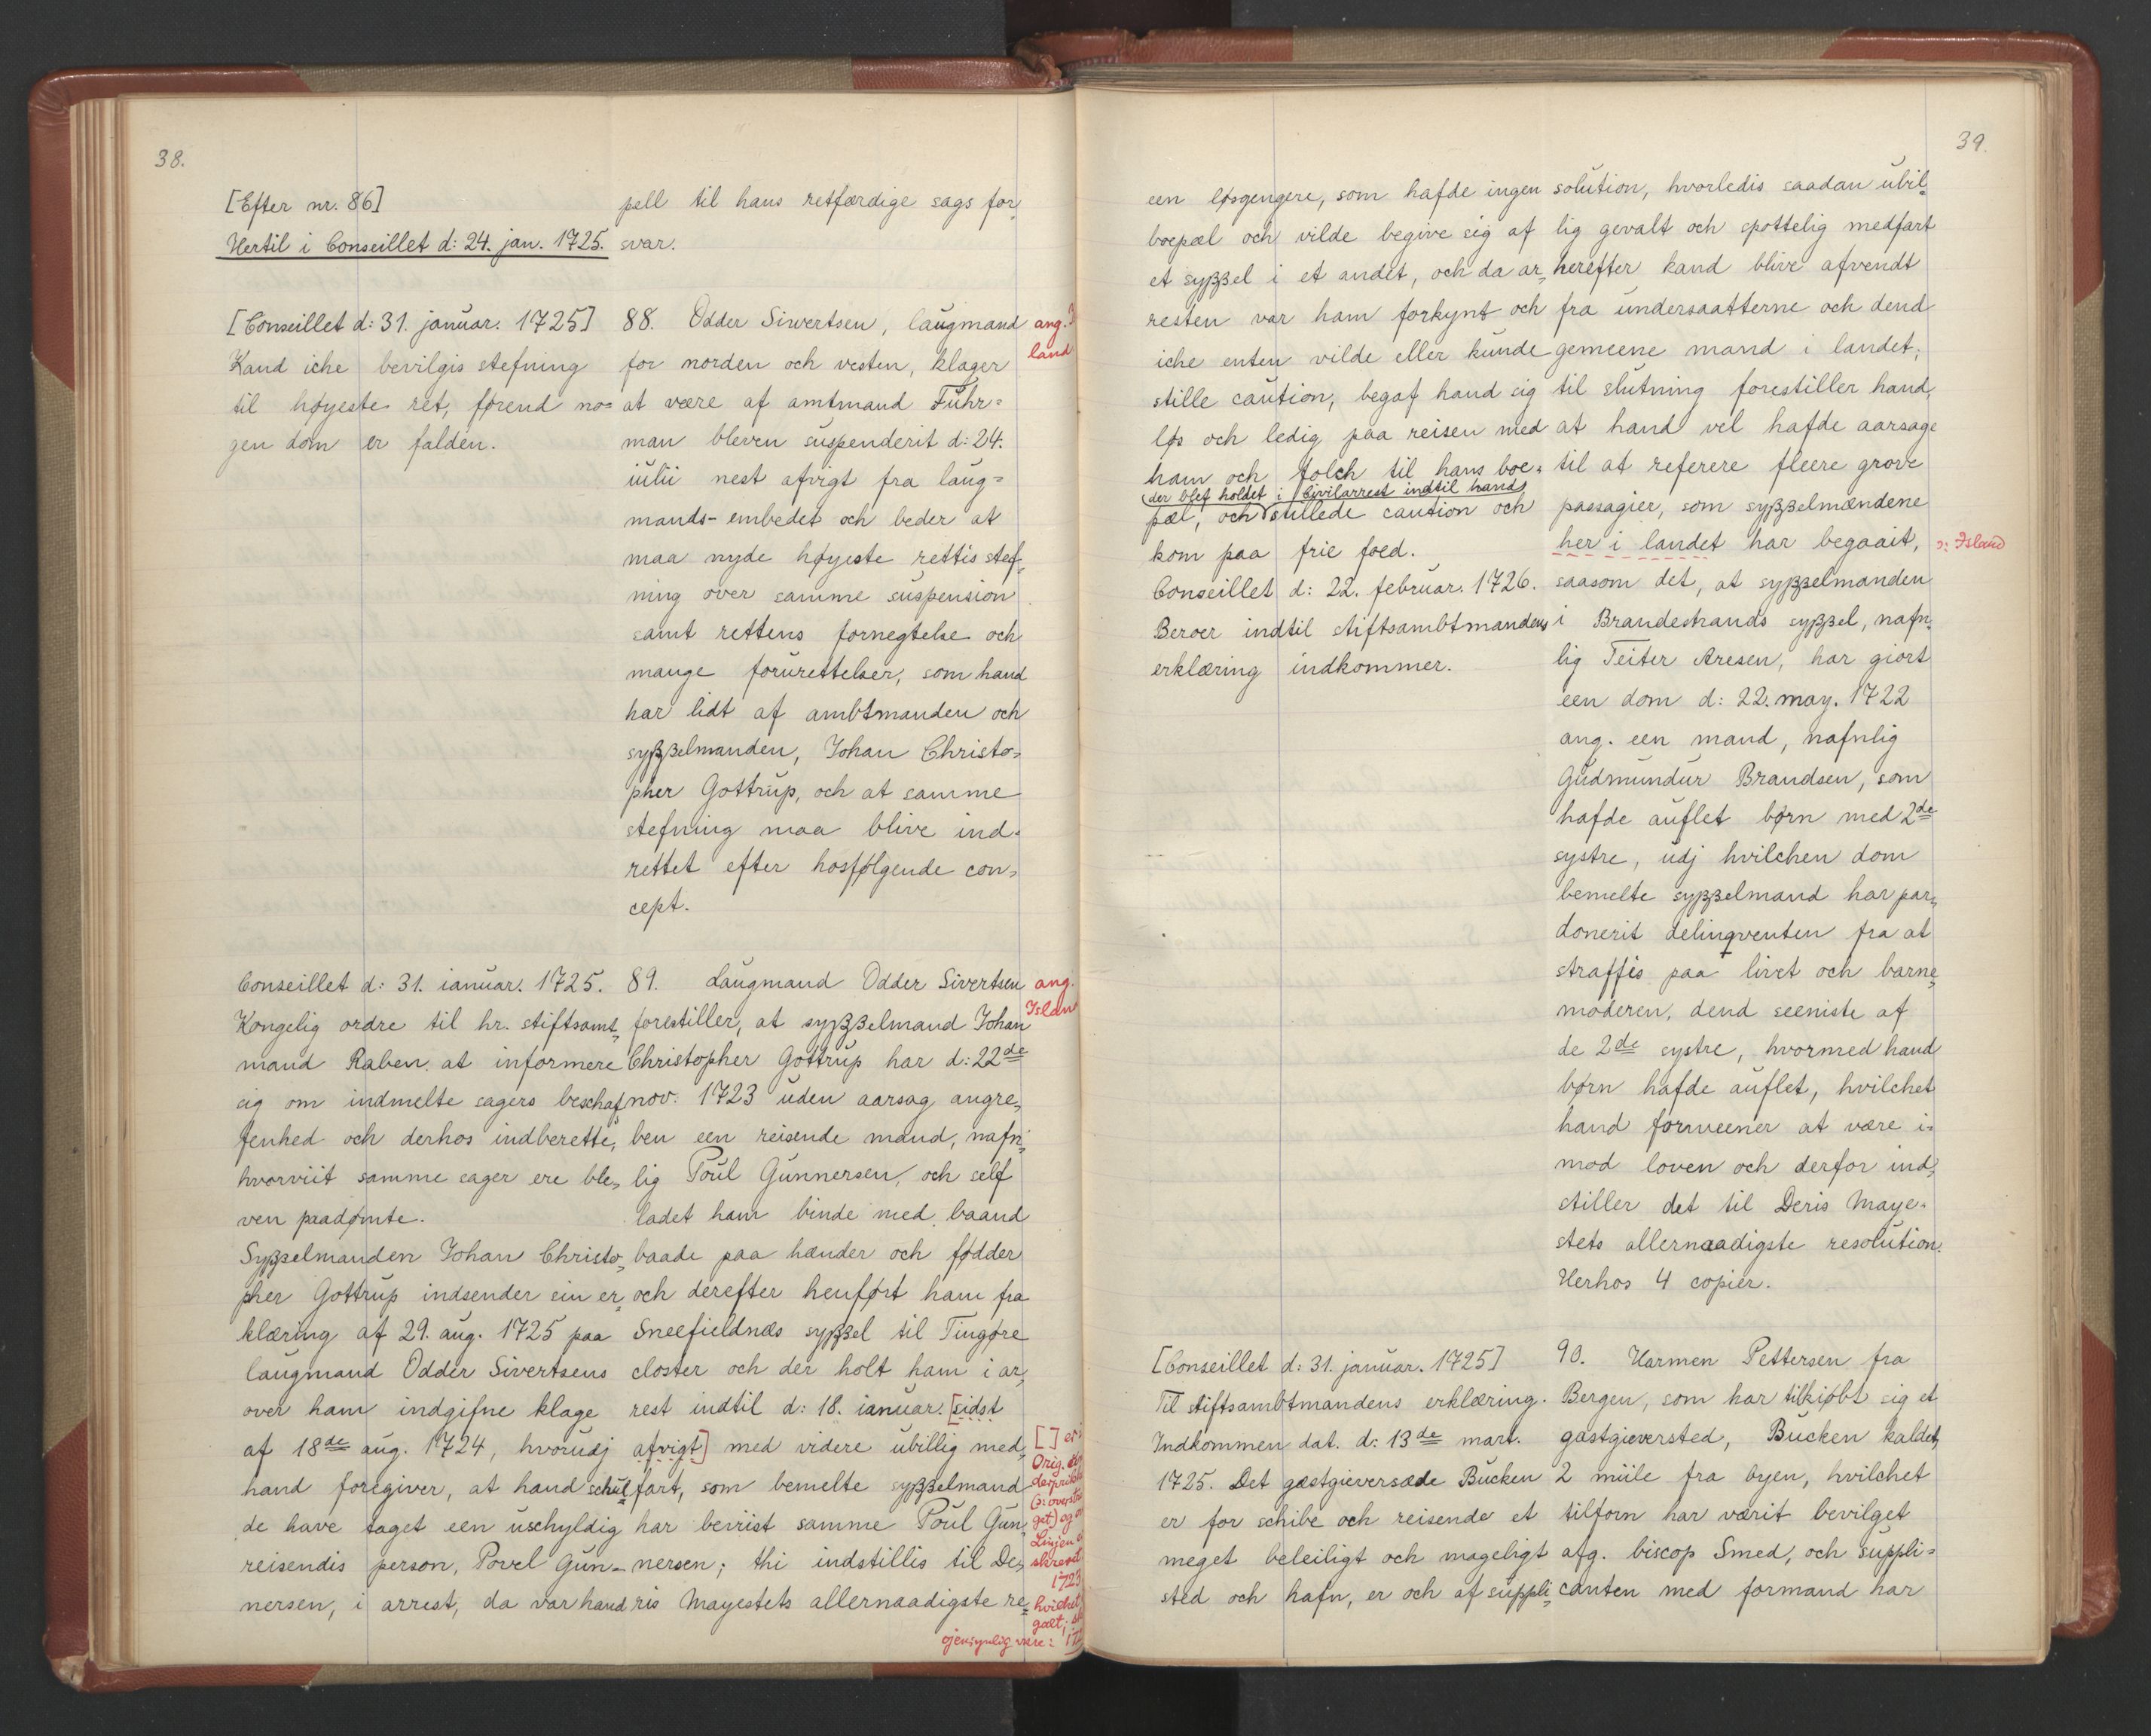 38.
[Efter nr. 86]
Hertil i Conseillet d: 24. jan. 1725.
[Conseillet d: 31. januar. 1725]
Kand iche bevilgis stefning
til høyeste ret, førend no=
gen dom er falden.
Conseillet d: 31. ianuar. 1725.
Kongelig ordre til hr. stiftsamt„
mand Raben at informere
sig om indmelte sagers beschaf„
fenhed och derhos indberette,
hvorviit samme sager ere ble„
ven paadømte.
Syßelmanden Johan Christo„
pher Gottrup indsender sin er„
klæring af 29. aug. 1725 paa
laugmand Odder Sivertsens
over ham indgifne klage
af 18de aug. 1724, hvorudj
hand foregiver, at hand schul„
de have taget een uschyldig
reisendis person, Povel Gun-
nersen, i arrest, da var hand
pell til hans retfærdige sags for„
svar.
88. Odder Siwertsen, laugmand
for norden och vesten, klager
at være af amtmand Fuhr=
man bleven suspenderit d: 24.
iulii nest afvigt fra laug=
mands-embedet och beder at
maa nyde høyeste rettis stef„
ning over samme suspension
samt rettens fornegtelse och
mange forurettelser, som hand
har lidt af ambtmanden och
syßelmanden, Johan Christo„
pher Gottrup, och at samme
stefning maa blive ind„
rettet efter hosfølgende con„
cept.
ang.
land
89. Laugmand Odder Sivertsen
forestiller, at syßelmand Johan
Christopher Gottrup har d: 22de
nov. 1723 uden aarsag angre„
ben een reisende mand, nafn„
lig Poul Gunnersen, och self
ladet ham binde med baand
baade paa hænder och fødder
och derefter henført ham fra
Sneefieldnæs syßel til Tingøre
closter och der holt ham i ar„
rest indtil d: 18. ianuar. [sidst
afvigt] med videre ubillig med„
fart, som bemelte syßelmand
har beviist samme Poul Gun„
nersen; thi indstillis til De„
ris Mayestets allernaadigste re„
ang.
Islan
[ ] er i
Orig.
get) og
Linjen
skrevet
1723
hvilket
galt;
øjensynlig være:
39.
een løsgengere, som hafde ingen
boepæl och vilde begive sig af
et syßel i et andet, och da ar„
resten var ham forkynt och
iche enten vilde eller kunde
stille caution, begaf hand sig
løs och ledig paa reisen med
ham och folch til hans boe„
(der blef holdet i Civilarrest indtil hand)
pæl, och stillede caution och
kom paa frie foed.
Conseillet d: 22. februar. 1726.
Beroer indtil stiftsambtmandens
erklæring indkommer.
[Conseillet d: 31. januar. 1725]
Til stiftsambtmandens erklæring.
Indkommen dat. d: 13de mart.
1725. Det gæstgieversæde Bucken
er for schibe och reisende et
meget beleiligt och mageligt
sted och hafn, er och af suppli„
solution, hvorledis saadan ubil„
lig gevalt och spottelig medfart
herefter kand blive afvendt
fra undersaatterne och dend
gemeene mand i landet;
til slutning forestiller hand,
at hand vel hafde aarsage
til at referere fleere grove
passagier, som syßelmændene
her i landet har begaait,
ɔ: Island
saasom det, at syßelmanden
i Brandestrands syßel, nafn„
lig Teiter Aresen, har giort
een dom d: 22. may. 1722
ang. een mand, nafnlig
Gudmundur Brandsen, som
hafde auflet børn med 2de
systre, udj hvilchen dom
bemelte syßelmand har par„
donerit delinqventen fra at
straffis paa livet och barne„
moderen, dend seeniste af
de 2de systre, hvormed hand
børn hafde auflet, hvilchet
hand formeener at være i„
mod loven och derfor ind„
stiller det til Deris Maye„
stets allernaadigste resolution.
Herhos 4 copier.
90. Harmen Pettersen fra
Bergen, som har tilkiøbt sig et
gæstgieversted, Bucken kaldet,
2 miile fra byen, hvilchet
tilforn har værit bevilget
afg. biscop Smed, och suppli=
canten med formand har